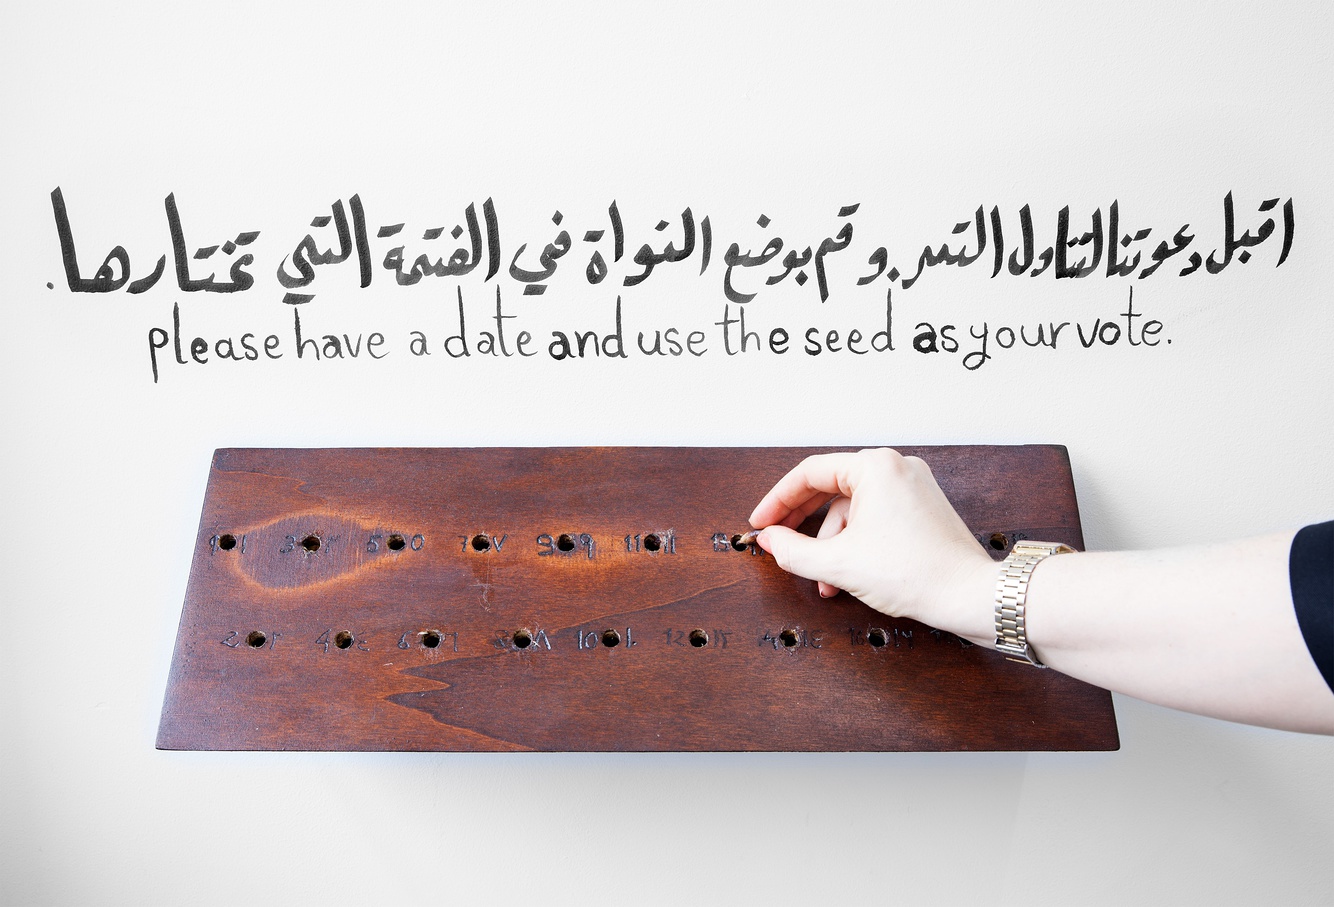 اقبل دعوتنا لتناول التمر. و قم بوضع النواة في الفتحة التي تختارها.
please have a date and use the seed as your vote.
1 ١ 3 ٣ 5 ٥ 7 ٧ 9 ٩ 11 ١١ 13
2 ٢ 4 ٤ 6 ٦ 8 ٨ 10 ١٠ 12 ١٢ 14 ١٤ 16 ١٦